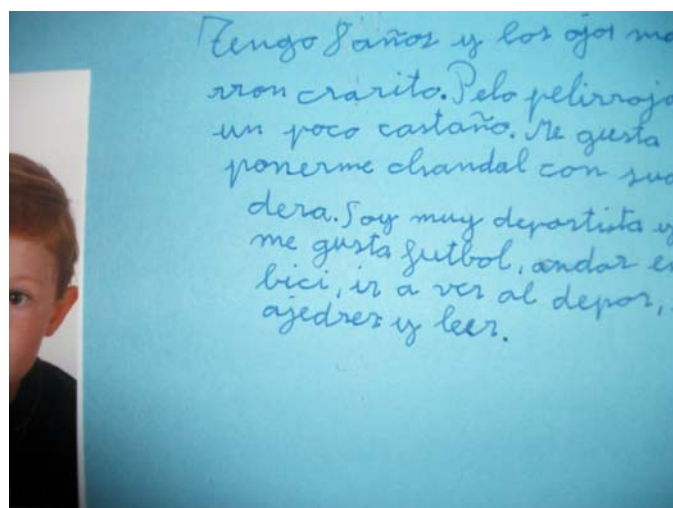 Tengo 8 años y los ojos ma
rron crarito. Pelo pelirrojo
un poco castaño. Me gusta
ponerme chandal con sud
dera. Soy muy deportista y
me gusta futbol, andar en
bici, ir a ver al depor,
ajedrez y leer.